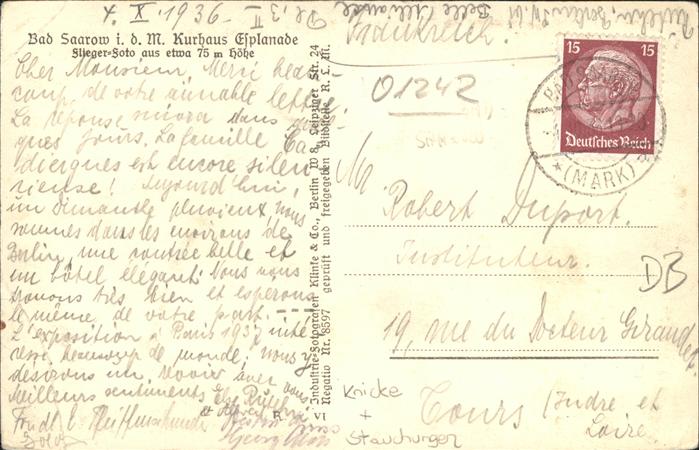 4. X. 1936.
Belle Alliance
Bad Saarow i. d. M. Kurhaus Esplanade
Flieger-Foto aus etwa 75 m Höhe
Cher Monsieur, Merci beau-
coup de votre aimable lettre.
La réponse suivra dans quel-
ques jours. La famille Ca
dierques est encore silen-
cieuse! Aujourd'hui,
un dimanche pluvieux, nous
sommes dans les environs de
Berlin, une contrée belle et
un hôtel élégant. Nous nous
trouvons très bien et esperons
le même de votre part.
L'exposition à Paris 1937 inté-
resse beaucoup de monde. Nous y
désirons un revoir avec vous
Meilleurs sentiments
Industrie-Fotografen Klinke & Co., Berlin W 8, Leipziger Str. 24
Negativ Nr. 8597 geprüft und freigegeben Bildstelle R. L. M.
R VI
Frankreich.
01242
15 15
Deutsches Reich
BAD SAAROW
* (MARK) a
Mr
Robert Duport.
Instituteur.
DB
19, rue du Docteur Giraudet.
Tours (Indre et
Loire)
Knicke
+
Stauchungen